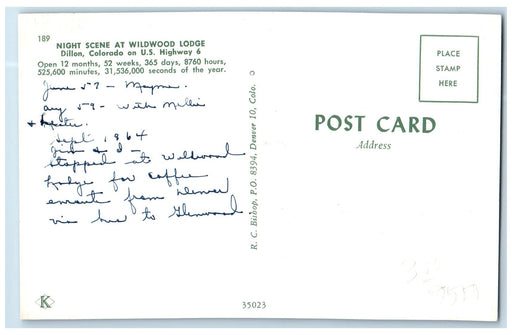 189
NIGHT SCENE AT WILDWOOD LODGE
Dillon, Colorado on U.S. Highway 6
Open 12 months, 52 weeks, 365 days, 8760 hours,
525,600 minutes, 31,536,000 seconds of the year.
June 57 - Mayme.
Aug 59 - with Millie
&
Sept 1964
& I -
stopped at Wildwood
Lodge for coffee
enroute from Denver
via bus to Glenwood
R. C. Bishop, P.O. 8394, Denver 10, Colo.
PLACE
STAMP
HERE
POST CARD
Address
K
35023